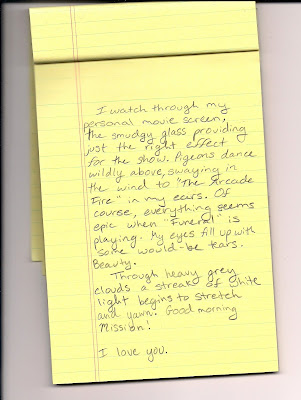 I watch through my
personal movie screen,
the smudgy glass providing
just the right effect
for the show. Pigeons dance
wildly above, swaying in
the wind to "The Arcade
Fire" in my ears. Of
course, everything seems
epic when "Funeral" is
playing. My eyes fill up with
some would-be tears.
Beauty.
Through heavy grey
clouds a streak of white
light begins to stretch
and yawn. Good morning
Mission!
I love you.